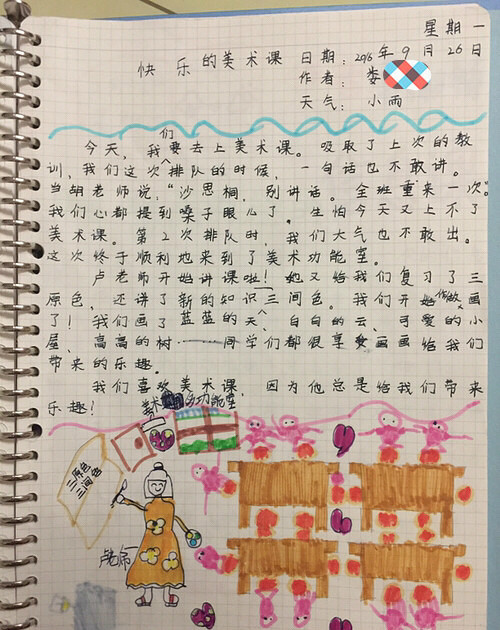 星期一
快乐的美术课 日期：2016年9月26日
作者：娄
天气：小雨
今天，我们要去上美术课。吸取了上次的教
训，我们这次排队的时候，一句话也不敢讲。
当胡老师说，“沙思桐，别讲话。全班重来一次。”
我们心都提到嗓子眼儿了，生怕今天又上不了
美术课。第2次排队时，我们大气也不敢出。
这次终于顺利地来到了美术功能室。
卢老师开始讲课啦！她又给我们复习了三
原色，还讲了新的知识三间色。我们开始做画
了！我们画了蓝蓝的天、白白的云、可爱的小
屋、高高的树……同学们都很享受画画给我们
带来的乐趣。
我们喜欢美术课，因为他总是给我们带来
乐趣！
美术功能室
三原色
三间色
卢老师